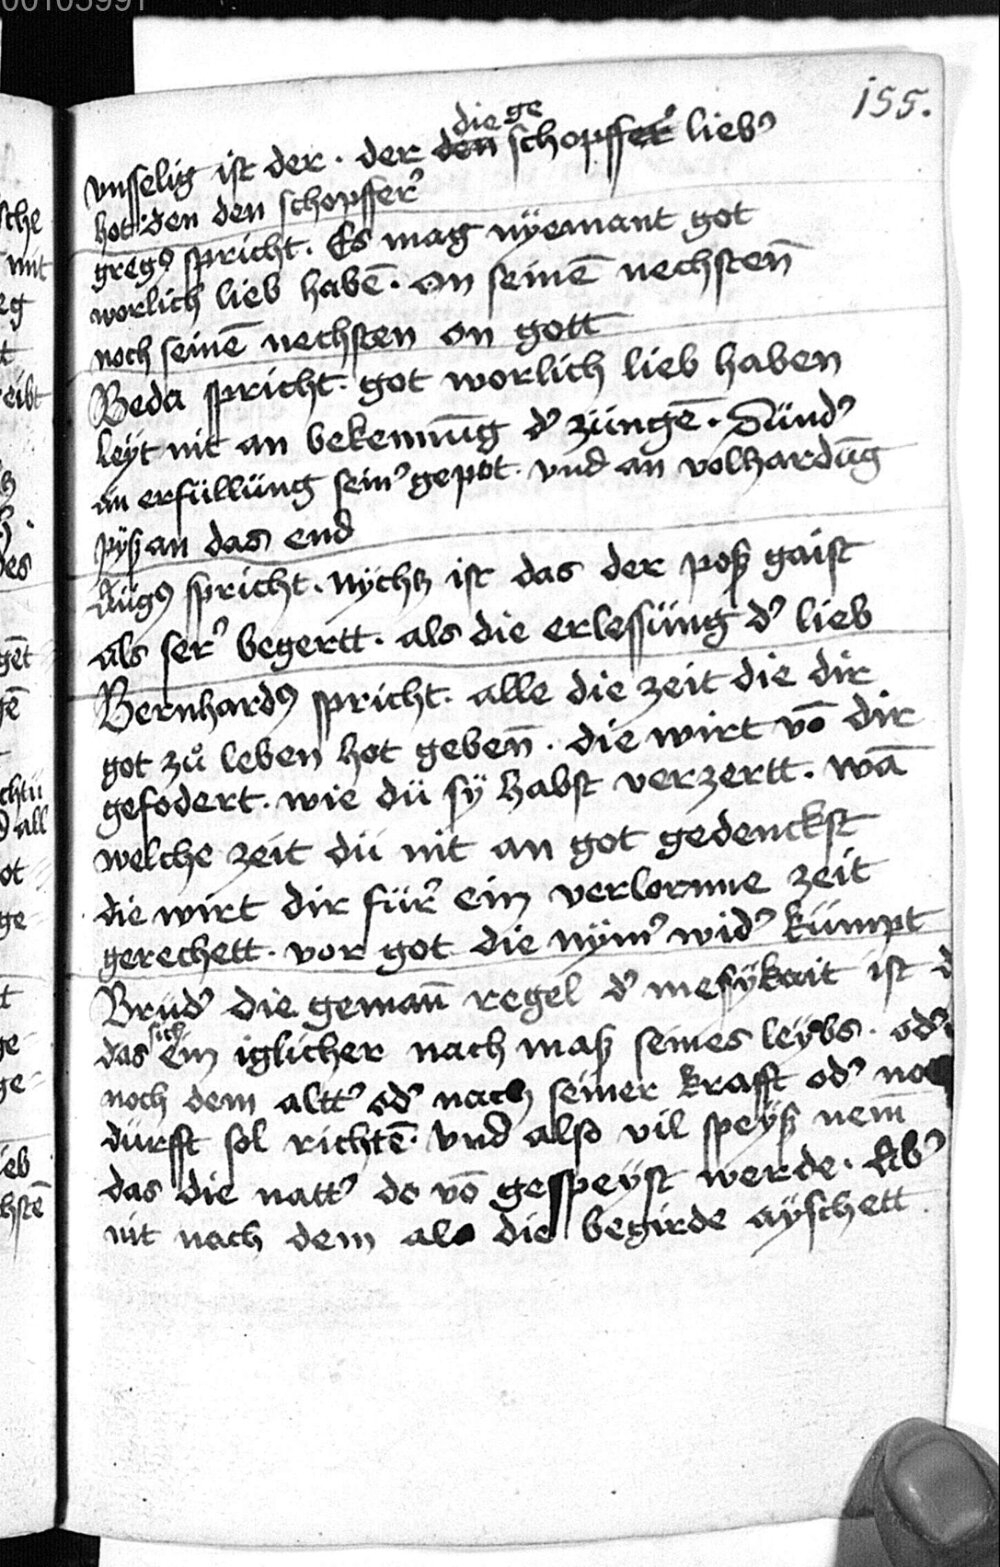 00105991
155.
die ge
vnsselig ist der · der den schopffer lieb᾽
hot · den den schopffer᾽
gregꝰ spricht · Es mag nÿemant got
worlich lieb habē · on seinē nechstēn
noch seinē nechsten on gott
Beda spricht · got worlich lieb haben
leyt nit an bekennūg d᾽ züngē · Sünd᾽
an erfüllüng sein᾽ gepot · vnd an volhardūg
pyß an das end
Augꝰ spricht · nÿchtz ist das der poß gaist
als ser᾽ begertt · als die erlessüng d᾽ lieb
Bernhardꝰ spricht · alle die zeit die dir
got zů leben hot gebēn · die wirt vō dir
gefodert · wie dü sÿ habst verzertt · wā
welche zeit dü nit an got gedenckst
die wirt dir für᾽ ein verlornne zeit
gerechett · vor got die nÿm᾽ wid᾽ kümpt
Brud᾽ die gemaū regel d᾽ messÿkait ist d
sich
das ein iglicher nach maß seines leybs · od᾽
noch dem altt᾽ od᾽ nach seiner krafft od᾽ no
dürfft sol richtē · vnd also vil speÿß nem̄
das die natt᾽ do vō gespeÿst werde · Ab᾽
nit nach dem als die begirde aÿschett